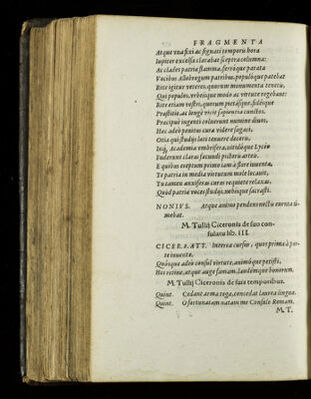 FRAGMENTA
Atque una fixi ac signati temporis hora
Iupiter excelsa clarabat sceptra columna:
Ac clades patriæ flamma, ferróque parata
Vocibus Allobrogum patribus, populóque patebat
Rite igitur veteres, quorum monumenta tenetis,
Qui populos, urbeisque modo ac virtute regebant:
Rite etiam vestri, quorum pietásque, fidésque
Præstitit, ac longè vicit sapientia cunctos.
Præcipuè ingenti coluerunt numine divos.
Hæc adeò penitus cura videre sagaci,
Otia qui studijs læti tenuere decoris,
Inq; Academia umbrifera, nitidóque Lycio
Fuderunt claras fœcundi pectoris arteis.
E quibus ereptum primo iam à flore iuventæ,
Te patria in media virtutum mole locavit,
Tu tamen anxiferas curas requiete relaxas,
Quod patriæ vocas studijs, nobisque sacrasti.
NONIVS. Atque animo pendens noctu eventa ti-
mebat.
M. Tullij Ciceronis de suo con-
sulatu lib. III.
CICER. ATT. Interea cursus, quos prima à par-
te iuventæ.
Quósque adeò consul virtute, animóque petisti,
Hos retine, atque auge famam, laudémque bonorum.
M. Tullij Ciceronis de suis temporibus.
Quint. Cedant arma togæ, concedat laurea linguæ.
Quint. O fortunatam natam me Consule Romam.
M. T.